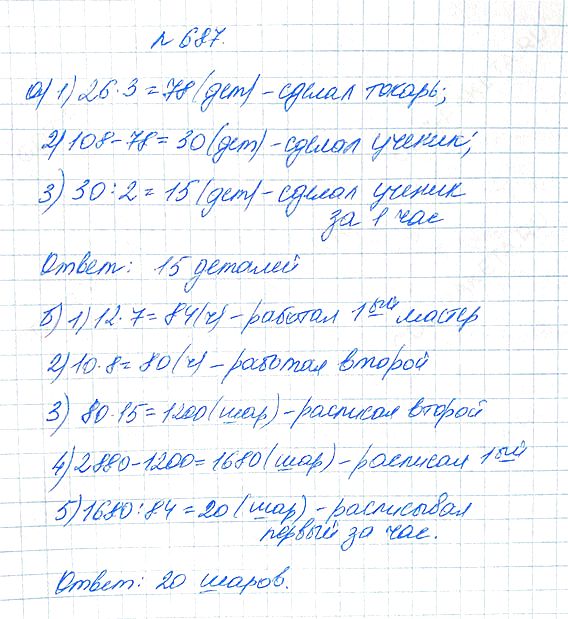 № 687.
а) 1) 26·3 = 78 (дет) - сделал токарь;
2) 108-78 = 30 (дет) - сделал ученик;
3) 30:2 = 15 (дет) - сделал ученик
за 1 час
Ответ: 15 деталей
б) 1) 12·7 = 84 (ч) - работал 1ый мастер
2) 10·8 = 80 (ч) - работал второй
3) 80·15 = 1200 (шар) - расписал второй
4) 2880-1200 = 1680 (шар) - расписал 1ый
5) 1680:84 = 20 (шар) - расписывал
первый за час.
Ответ: 20 шаров.